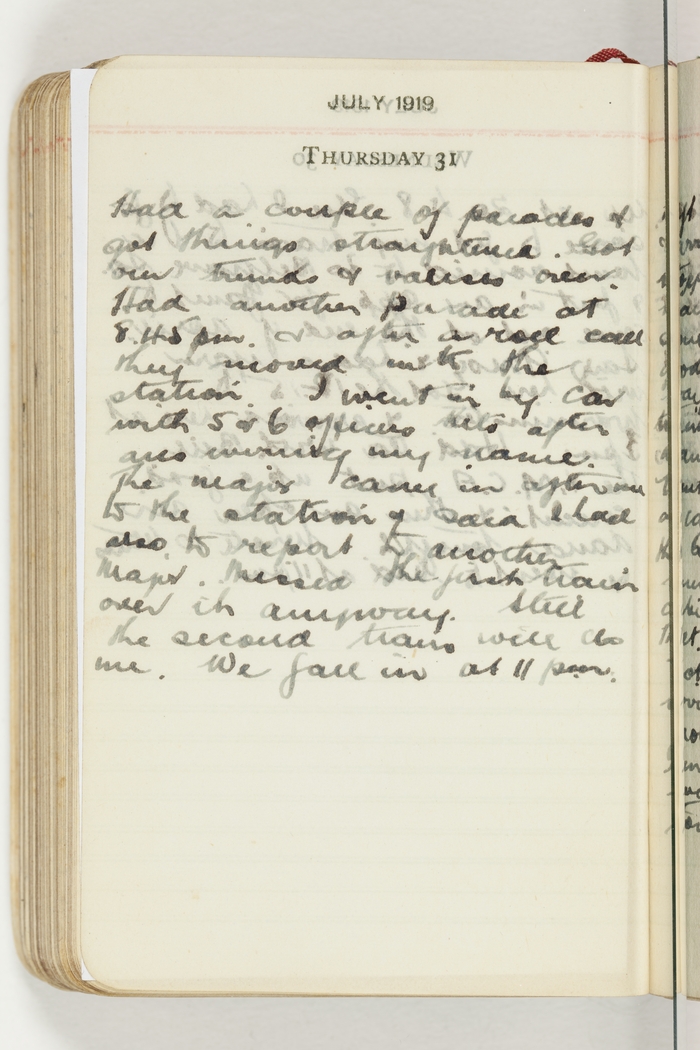 JULY 1919
THURSDAY 31
Had a couple of parades &
got things straightened. Got
our trunks & valises over.
Had another parade at
8.45 pm. & after a roll call
they moved into the
station. I went in by car
with 5 or 6 officers
my name.
The Major came in after me
to the station & said I had
also to report to another
Major. Missed the first train
over it anyway. Still
the second train will do
me. We fall in at 11 pm.